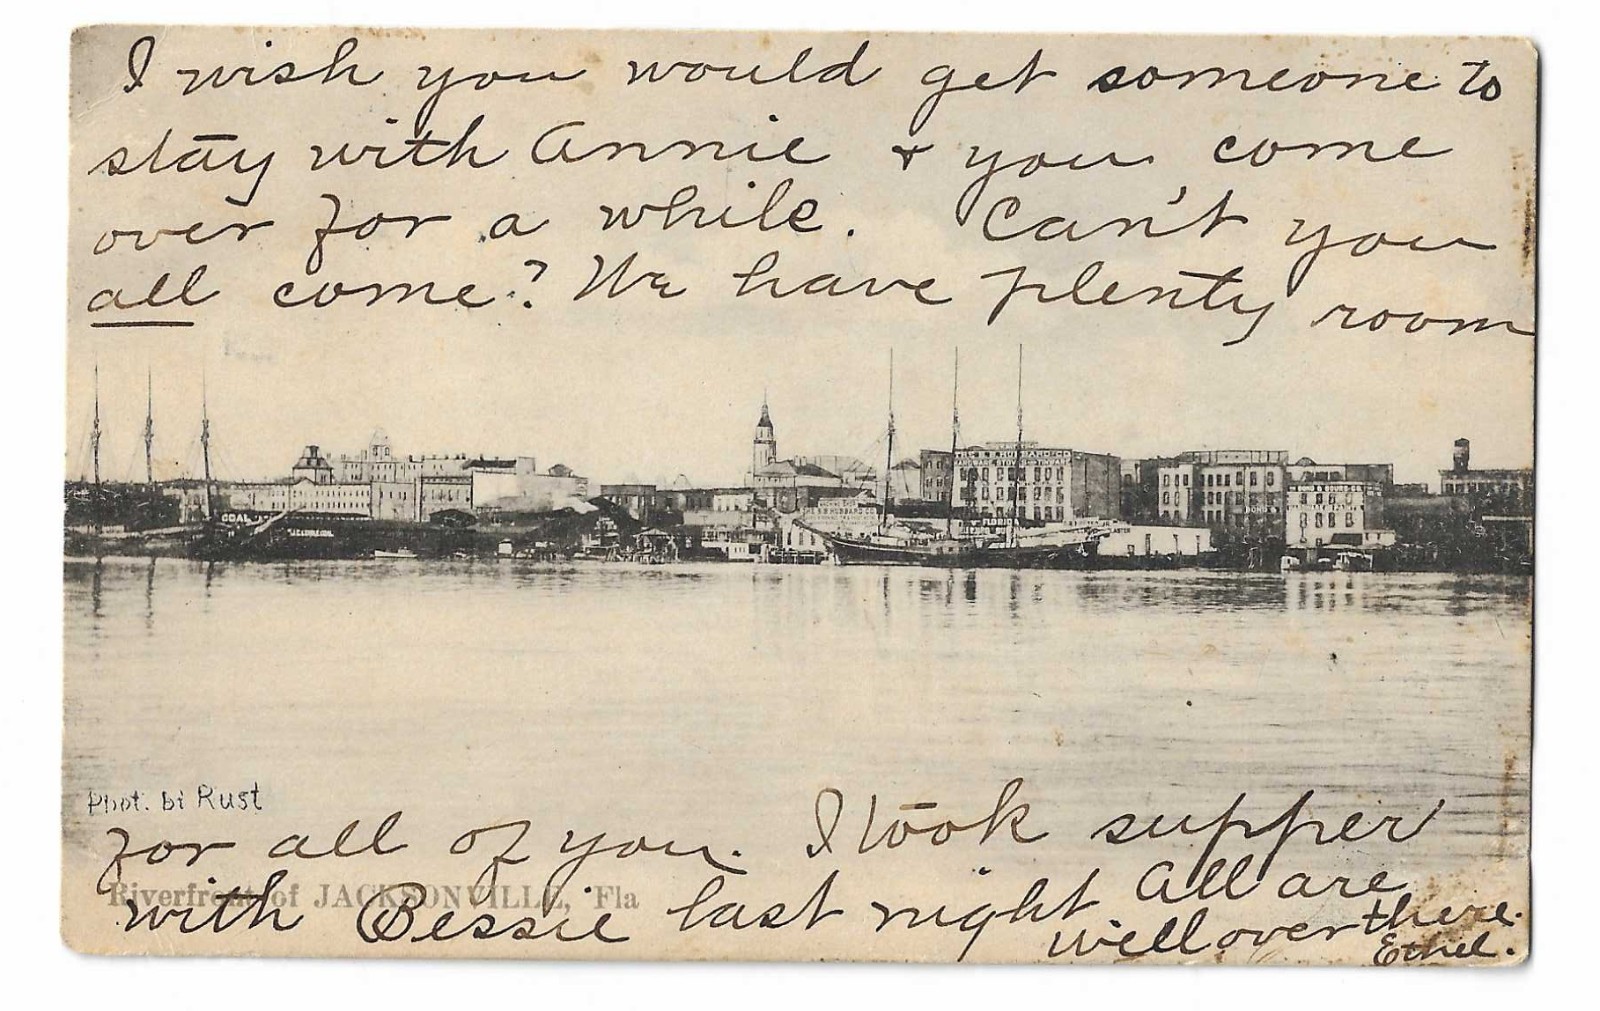 I wish you would get someone to
stay with Annie & you come
over for a while. Can't you
all come? We have plenty room
COAL
HUBBARD CO.
FLORIDA
Phot. bi Rust
for all of you. I took supper
Riverfront of JACKSONVILLE, Fla
with Bessie last night All are
well over there.
Ethel.